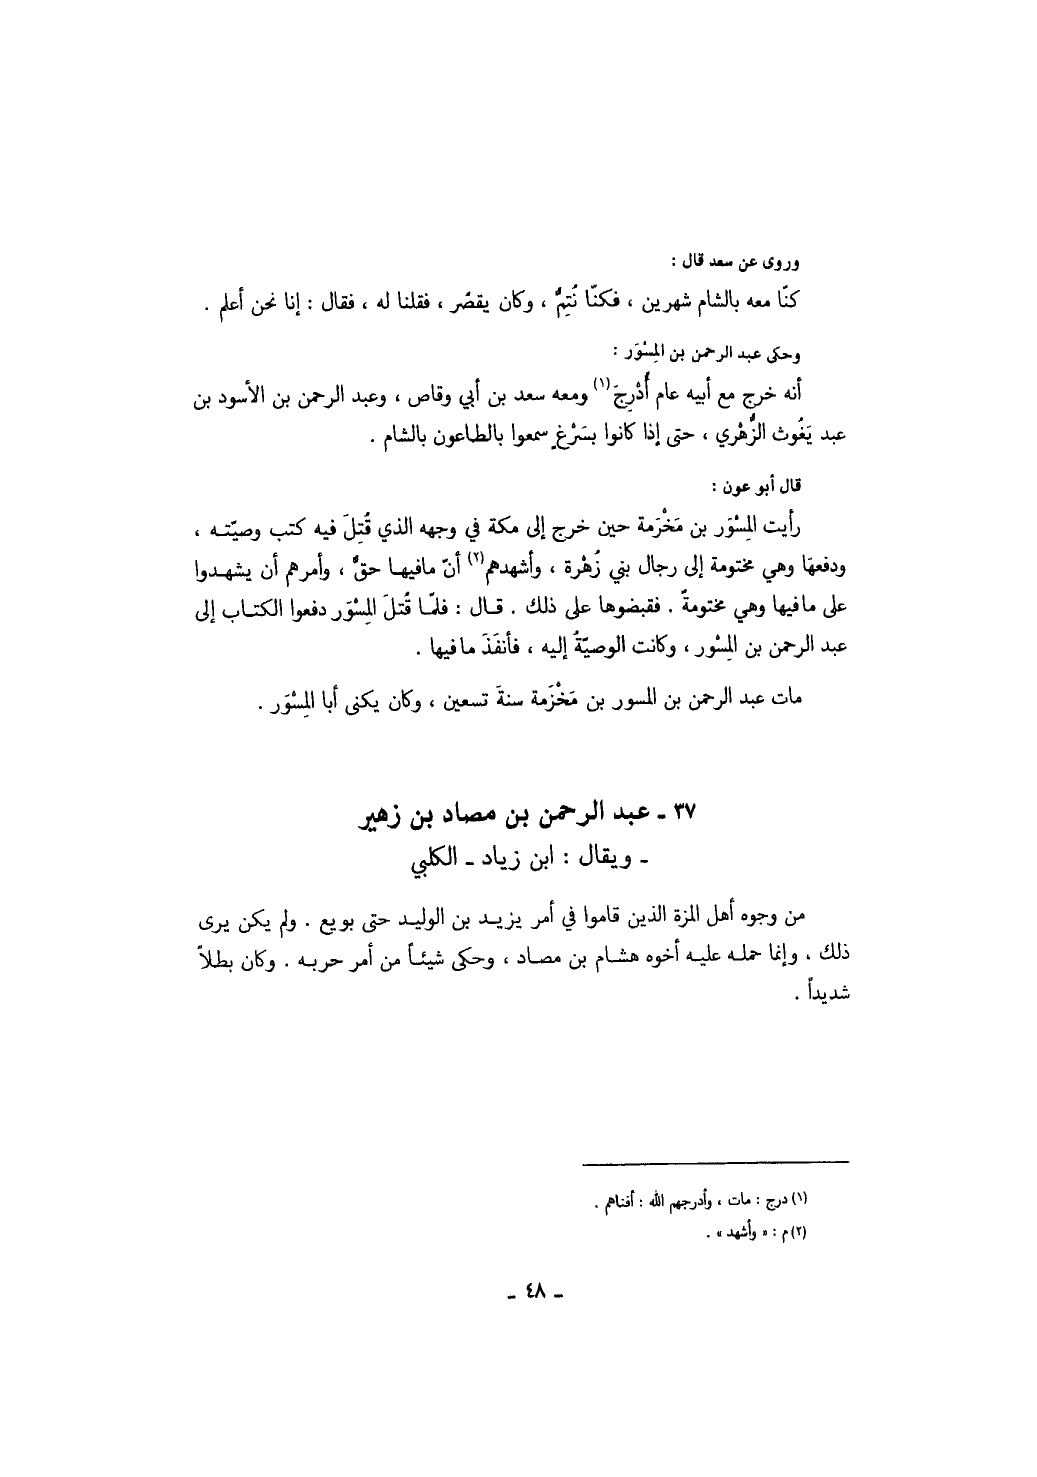 وروى عن سعد قال :
كنّا معه بالشام شهرين ، فكنّا نُتِمُّ ، وكان يقصُر ، فقلنا له ، فقال : إنا نحن أعلم .
وحكى عبد الرحمن بن المِسْوَر :
أنه خرج مع أبيه عام أُدْرِجَ(١) ومعه سعد بن أبي وقاص ، وعبد الرحمن بن الأسود بن
عبد يَغُوث الزُّهْري ، حتى إذا كانوا بسَرْغٍ سمعوا بالطاعون بالشام .
قال أبو عون :
رأيت المِسْوَر بن مَخْرَمة حين خرج إلى مكة في وجهه الذي قُتِلَ فيه كتب وصيّتـه ،
ودفعها وهي مختومة إلى رجال بني زُهْرة ، وأشهدهم(٢) أنّ مافيهـا حقٌّ ، وأمرهم أن يشهـدوا
على مافيها وهي مختومةٌ . فقبضوها على ذلك . قـال : فلمّـا قُتلَ المِسْوَر دفعوا الكتـاب إلى
عبد الرحمن بن المِسْور ، وكانت الوصيّةُ إليه ، فأنفَذَ مافيها .
مات عبد الرحمن بن المسور بن مَخْرَمة سنةَ تسعين ، وكان يكنى أبا المِسْوَر .
٣٧ ـ عبد الرحمن بن مصاد بن زهير
ـ ويقال : ابن زياد ـ الكلبي
من وجوه أهل المزة الذين قاموا في أمر يزيـد بن الوليـد حتى بويع . ولم يكن يرى
ذلك ، وإنما حملـه عليـه أخوه هشـام بن مصـاد ، وحكى شيئـاً من أمر حربـه . وكان بطـلاً
شديداً .
(١) درج : مات ، وأدرجهم الله : أفناهم .
(٢) م : « وأشهد » .
ـ ٤٨ ـ